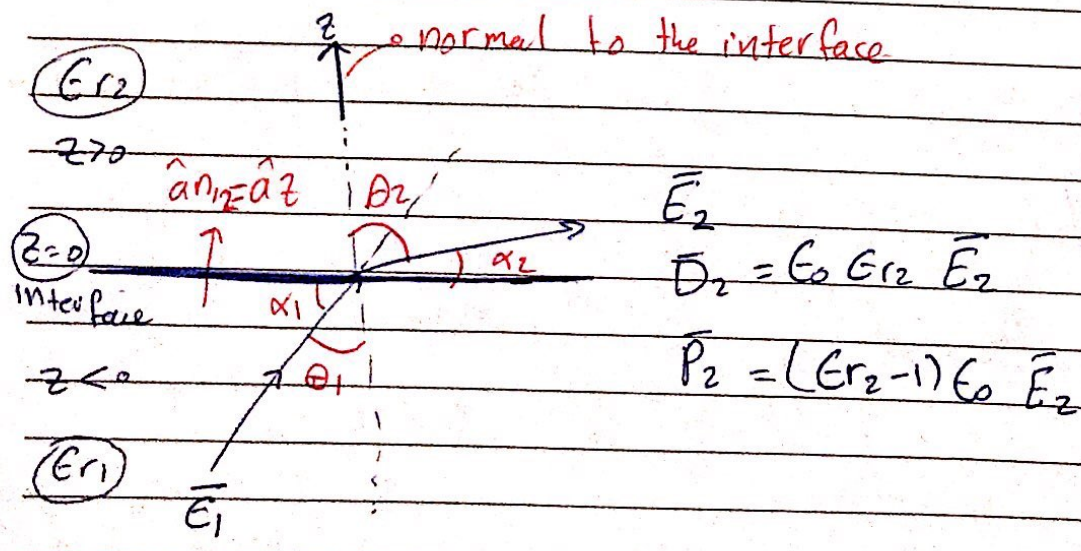 z
normal to the interface
Єr2
z>0
ân12=âz
θ2
Ē2
z=0
interface
α1
α2
D̄2 = Є0 Єr2 Ē2
z<0
θ1
P̄2 = (Єr2-1) Є0 Ē2
Єr1
Ē1